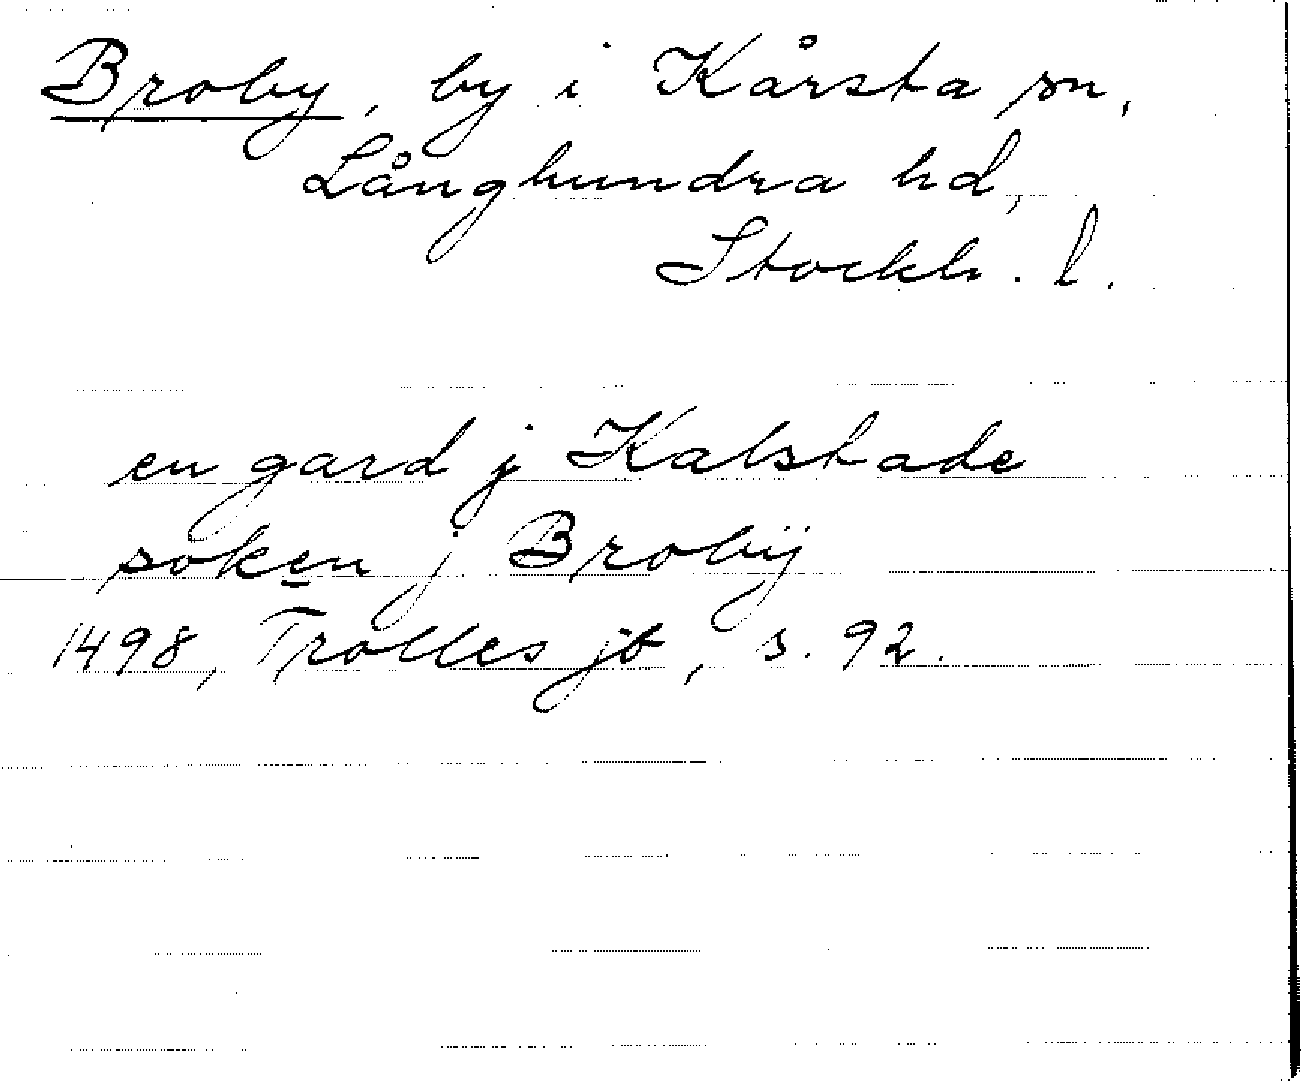 Broby, by i Kårsta sn,
Långhundra hd,
Stockh. l.
en gard j Kalstade
soken j Brobÿ
1498, Trolles jb, s. 92.